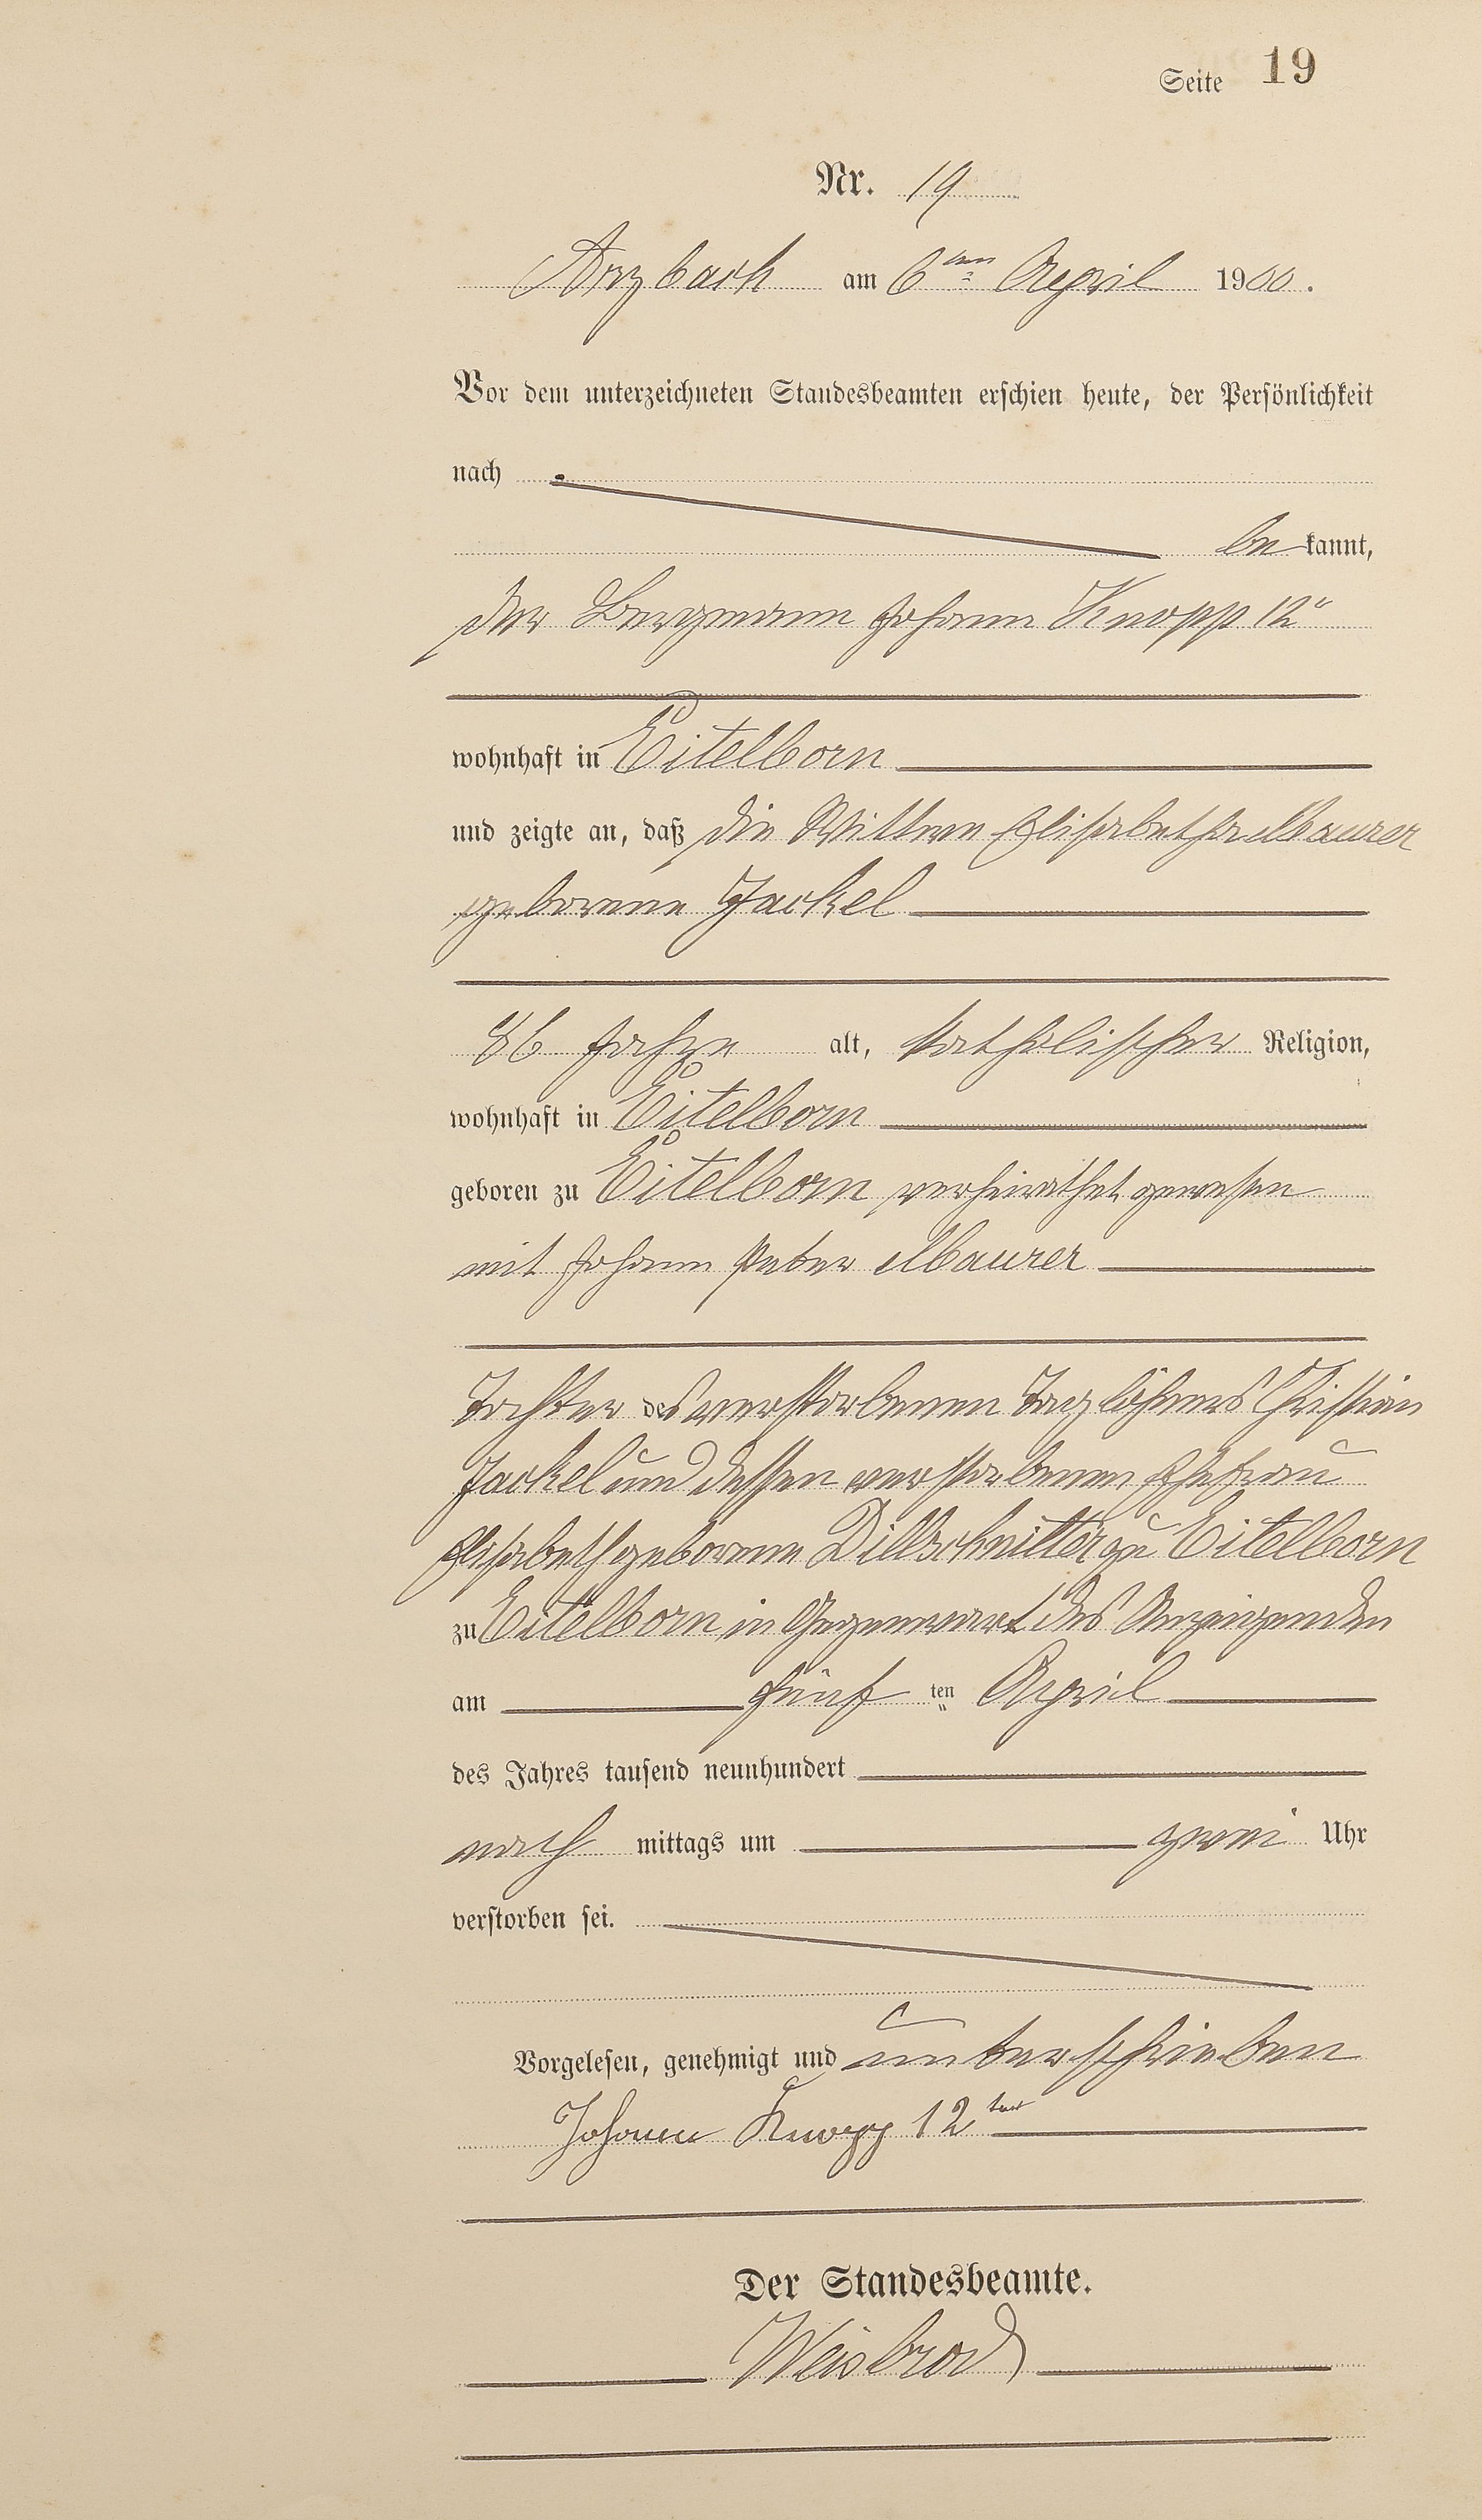 Seite 19
Nr. 19
Arzbach am 6ten April 1900.
Vor dem unterzeichneten Standesbeamten erschien heute, der Persönlichkeit
nach
be kannt,
der Bergmann Johann Knopp 12r
wohnhaft in Eitelborn
und zeigte an, daß die Wittwe Elisabetha Maurer
geborene Jackel
86 Jahre alt, katholischer Religion,
wohnhaft in Eitelborn
geboren zu Eitelborn verheirathet gewesen
mit Johann Peter Maurer
Tochter des verstorbenen Taglöhners Christian
Jackel und dessen verstorbenen Ehefrau
Elisabeth geborene Dillschnitter zu Eitelborn
zu Eitelborn in Gegenwart des Anzeigenden
am fünf ten April
des Jahres tausend neunhundert
nach mittags um zwei Uhr
verstorben sei.
Vorgelesen, genehmigt und unterschrieben
Johann Knopp 12ter
Der Standesbeamte.
Weisbrod